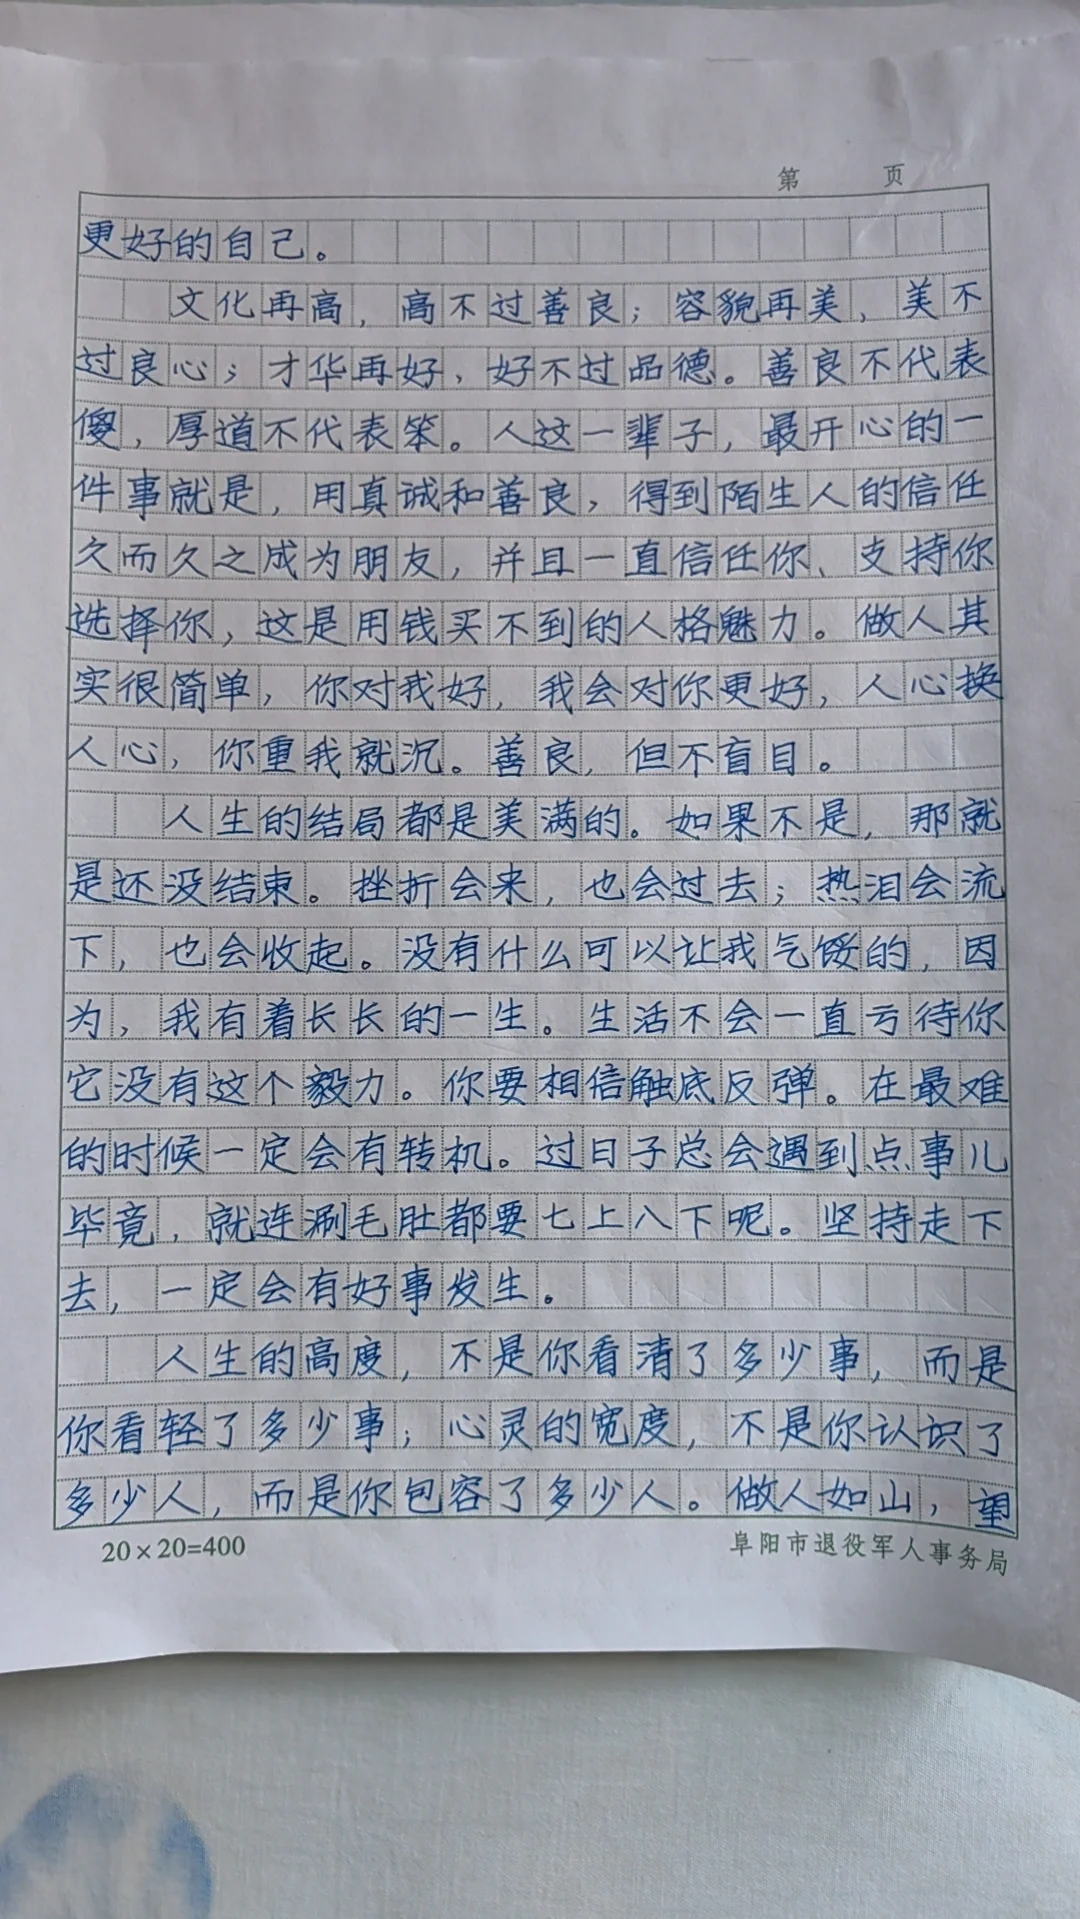 第 页
更好的自己。
文化再高，高不过善良；容貌再美，美不
过良心；才华再好，好不过品德。善良不代表
傻，厚道不代表笨。人这一辈子，最开心的一
件事就是，用真诚和善良，得到陌生人的信任
久而久之成为朋友，并且一直信任你、支持你
选择你，这是用钱买不到的人格魅力。做人其
实很简单，你对我好，我会对你更好，人心换
人心，你重我就沉。善良，但不盲目。
人生的结局都是美满的。如果不是，那就
是还没结束。挫折会来，也会过去；热泪会流
下，也会收起。没有什么可以让我气馁的，因
为，我有着长长的一生。生活不会一直亏待你
它没有这个毅力。你要相信触底反弹。在最难
的时候一定会有转机。过日子总会遇到点事儿
毕竟，就连涮毛肚都要七上八下呢。坚持走下
去，一定会有好事发生。
人生的高度，不是你看清了多少事，而是
你看轻了多少事；心灵的宽度，不是你认识了
多少人，而是你包容了多少人。做人如山，望
20×20=400
阜阳市退役军人事务局